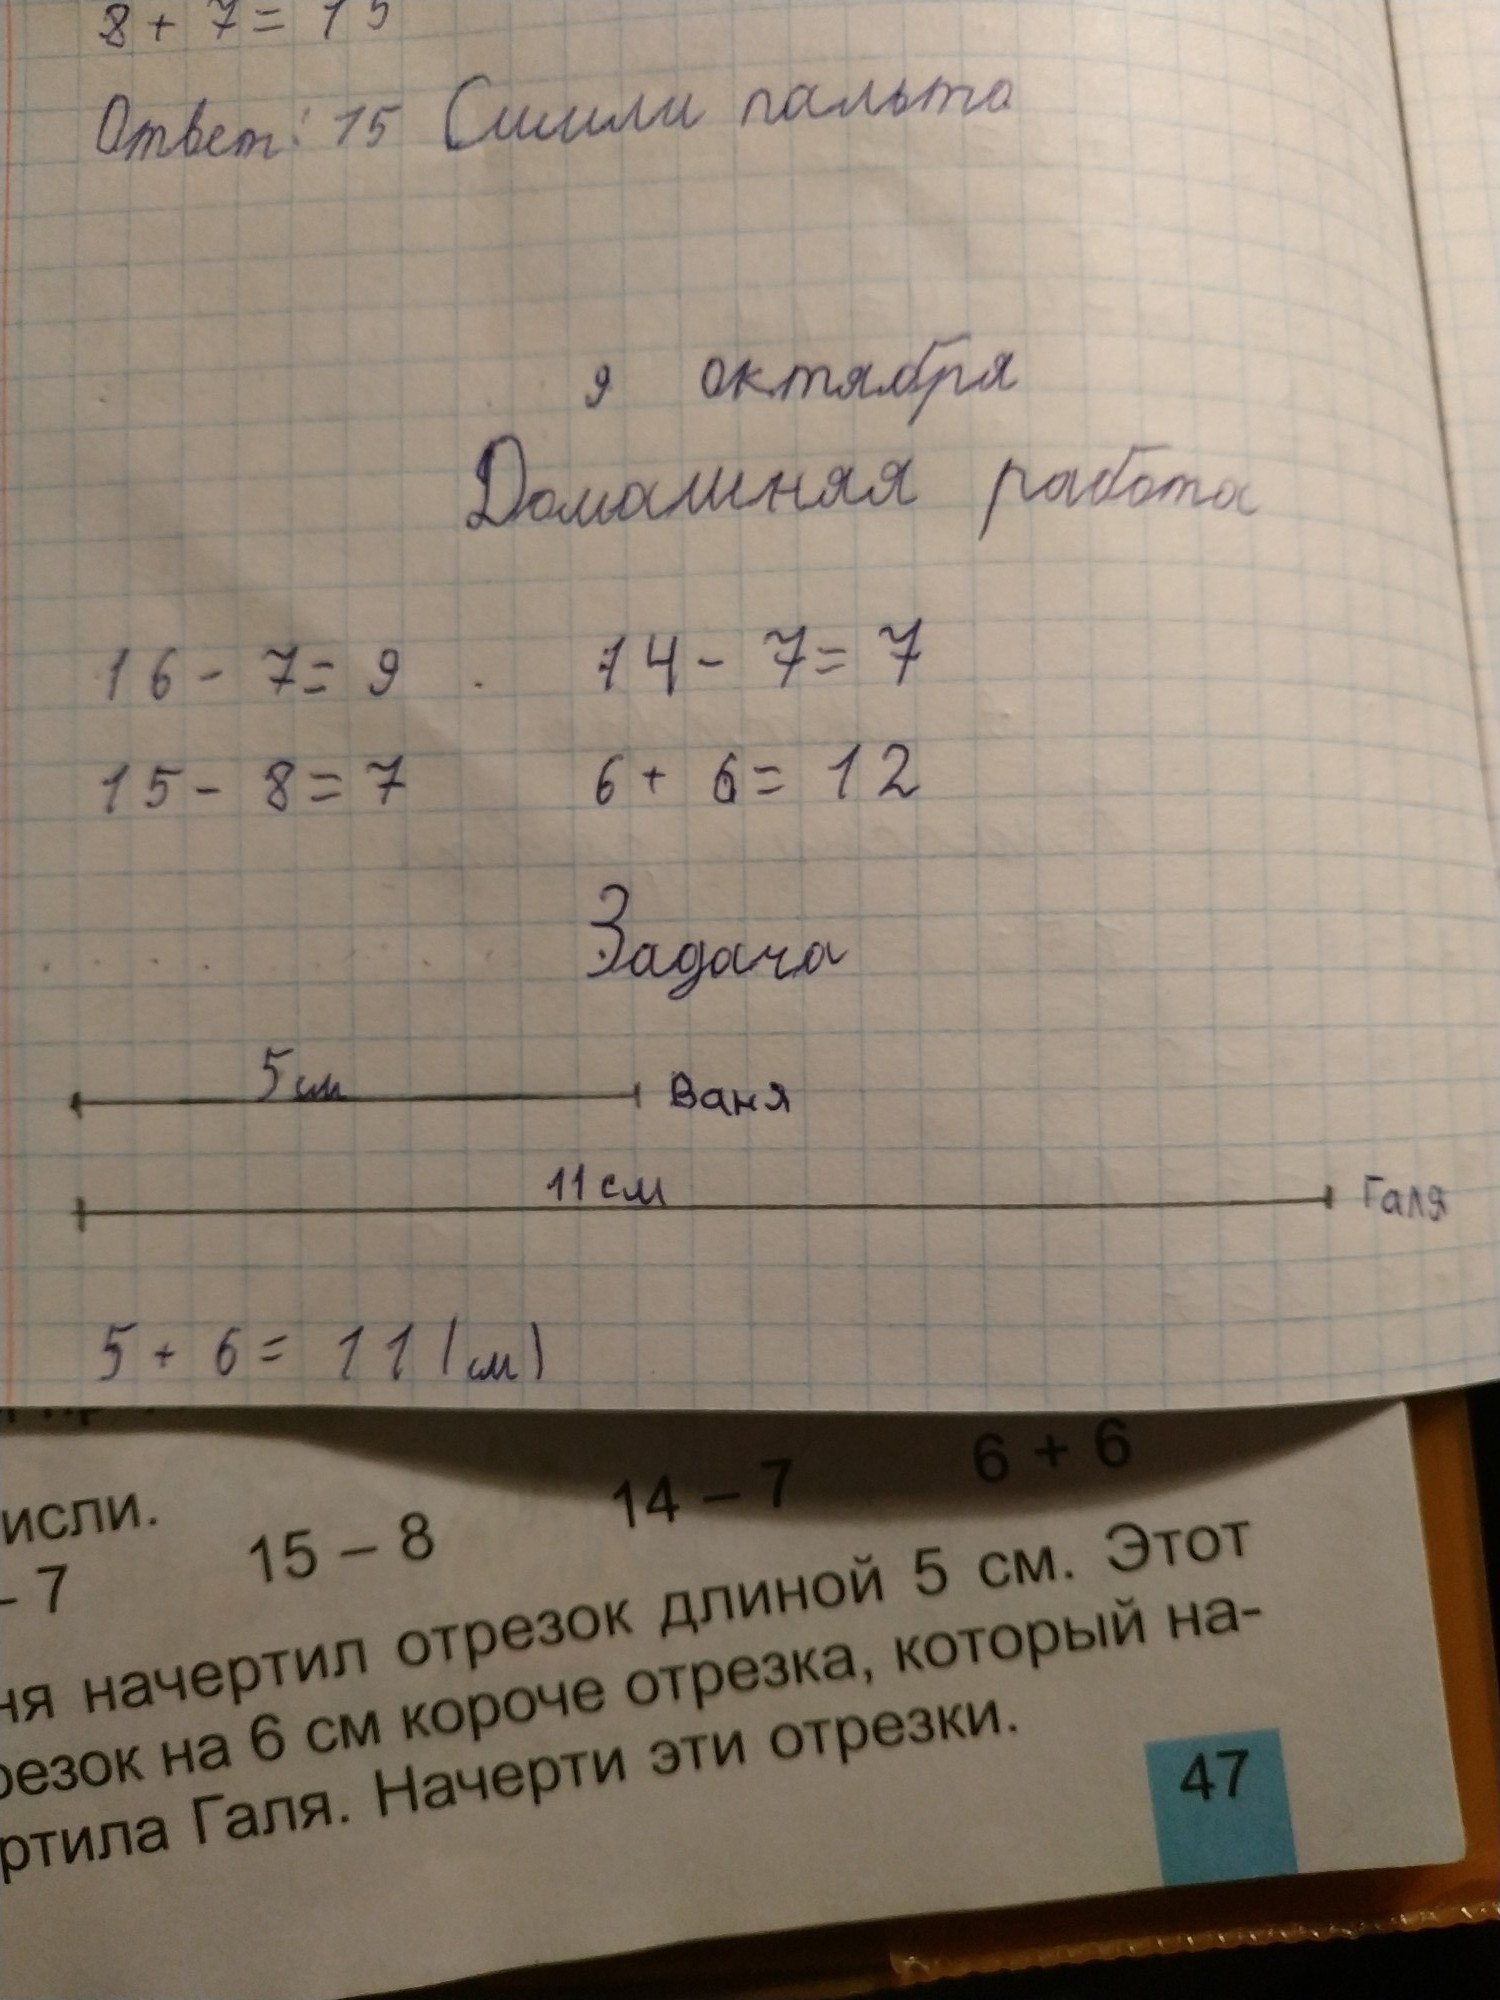 8 + 7 = 15
Ответ: 15 Сшили пальто
9 октября
Домашняя работа
16 - 7 = 9 14 - 7 = 7
15 - 8 = 7 6 + 6 = 12
Задача
5 см Ваня
11 см Галя
5 + 6 = 11 (см)
исли.
– 7 15 – 8 14 – 7 6 + 6
ня начертил отрезок длиной 5 см. Этот
резок на 6 см короче отрезка, который на-
ртила Галя. Начерти эти отрезки.
47